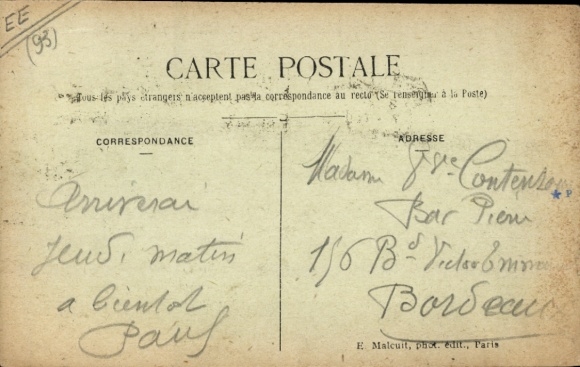 EE
(93)
CARTE POSTALE
Tous les pays étrangers n'acceptent pas la correspondance au recto (Se renseigner à la Poste)
CORRESPONDANCE
ADRESSE
Arriverai
Jeudi matin
a bientot
Paul
Madame Vve
Bar Pierre
156 Bd Victor Emm
Bordeau
E. Malcuit, phot. édit., Paris